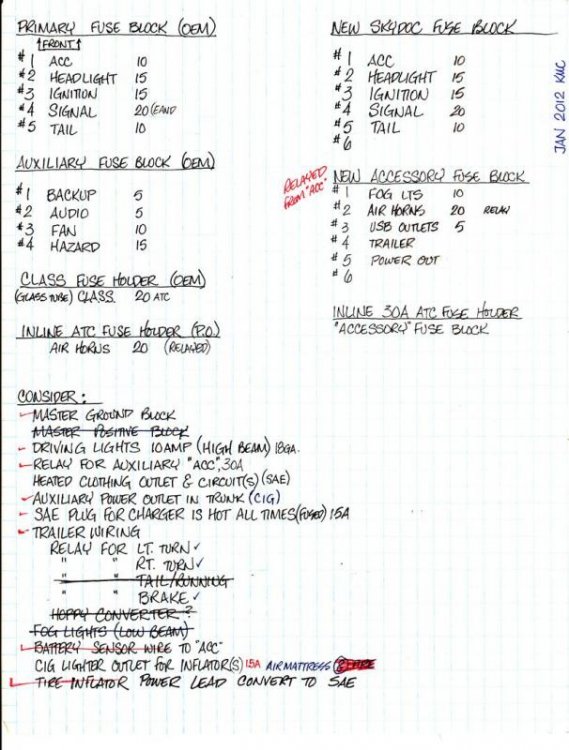 PRIMARY FUSE BLOCK (OEM)
↑FRONT↑
#1 ACC 10
#2 HEADLIGHT 15
#3 IGNITION 15
#4 SIGNAL 20 (EAND
#5 TAIL 10
AUXILIARY FUSE BLOCK (OEM)
#1 BACKUP 5
#2 AUDIO 5
#3 FAN 10
#4 HAZARD 15
CLASS FUSE HOLDER (OEM)
(GLASS TUBE) CLASS 20 ATC
INLINE ATC FUSE HOLDER (P.O.)
AIR HORNS 20 (RELAYED)
NEW SKYDOC FUSE BLOCK
#1 ACC 10
#2 HEADLIGHT 15
#3 IGNITION 15
#4 SIGNAL 20
#5 TAIL 10
#6
JAN 2012 KWC
RELAYED FROM "ACC"
NEW ACCESSORY FUSE BLOCK
#1 FOG LTS 10
#2 AIR HORNS 20 RELAY
#3 USB OUTLETS 5
#4 TRAILER
#5 POWER OUT
#6
INLINE 30A ATC FUSE HOLDER
"ACCESSORY" FUSE BLOCK
CONSIDER:
MASTER GROUND BLOCK
MASTER POSITIVE BLOCK
DRIVING LIGHTS 10AMP (HIGH BEAM) 18GA.
RELAY FOR AUXILIARY "ACC", 30A
HEATED CLOTHING OUTLET & CIRCUIT(S) (SAE)
AUXILIARY POWER OUTLET IN TRUNK (CIG)
SAE PLUG FOR CHARGER IS HOT ALL TIMES (FUSED) 15A
TRAILER WIRING
RELAY FOR LT. TURN ✓
" " RT. TURN ✓
" " TAIL/RUNNING
" " BRAKE ✓
HOPPY CONVERTER?
FOG LIGHTS (LOW BEAM)
BATTERY SENSOR WIRE TO "ACC"
CIG LIGHTER OUTLET FOR INFLATOR(S) 15A AIR MATTRESS
TIRE INFLATOR POWER LEAD CONVERT TO SAE